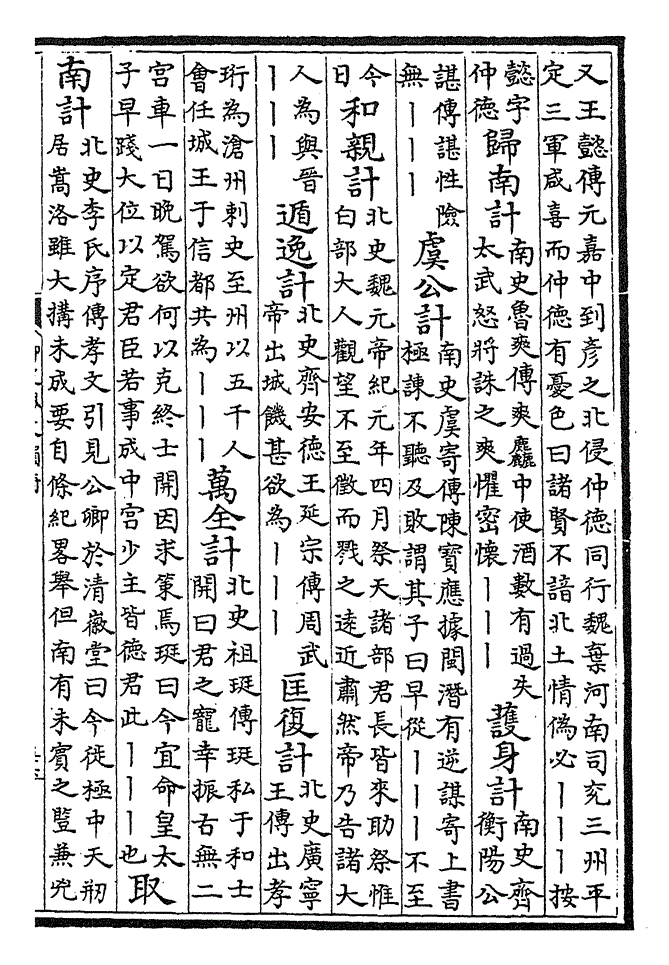 又王懿傳元嘉中到彥之北侵仲德同行魏棄河南司兗三州平
定三軍咸喜而仲德有憂色曰諸賢不諳北土情偽必｜｜｜按
懿字
仲德
歸南計
南史魯爽傳爽麤中使酒數有過失
太武怒將誅之爽懼密懷｜｜｜
護身計
南史齊
衡陽公
諶傳諶性險
無｜｜｜
虞公計
南史虞寄傳陳寶應據閩潛有逆謀寄上書
極諫不聽及敗謂其子曰早從｜｜｜不至
今
日
和親計
北史魏元帝紀元年四月祭天諸部君長皆來助祭惟
白部大人觀望不至徵而戮之遠近肅然帝乃告諸大
人為與晉
｜｜｜
遁逸計
北史齊安德王延宗傳周武
帝出城饑甚欲為｜｜｜
匡復計
北史廣寧
王傳出孝
珩為滄州刺史至州以五千人
會任城王于信都共為｜｜｜
萬全計
北史祖珽傳珽私于和士
開曰君之寵幸振古無二
宮車一日晚駕欲何以克終士開因求策焉珽曰今宜命皇太
子早踐大位以定君臣若事成中宮少主皆德君此｜｜｜也
取
南計
北史李氏序傳孝文引見公卿於清徽堂曰今徙極中天剏
居嵩洛雖大搆未成要自條紀畧舉但南有未賓之豎兼兇